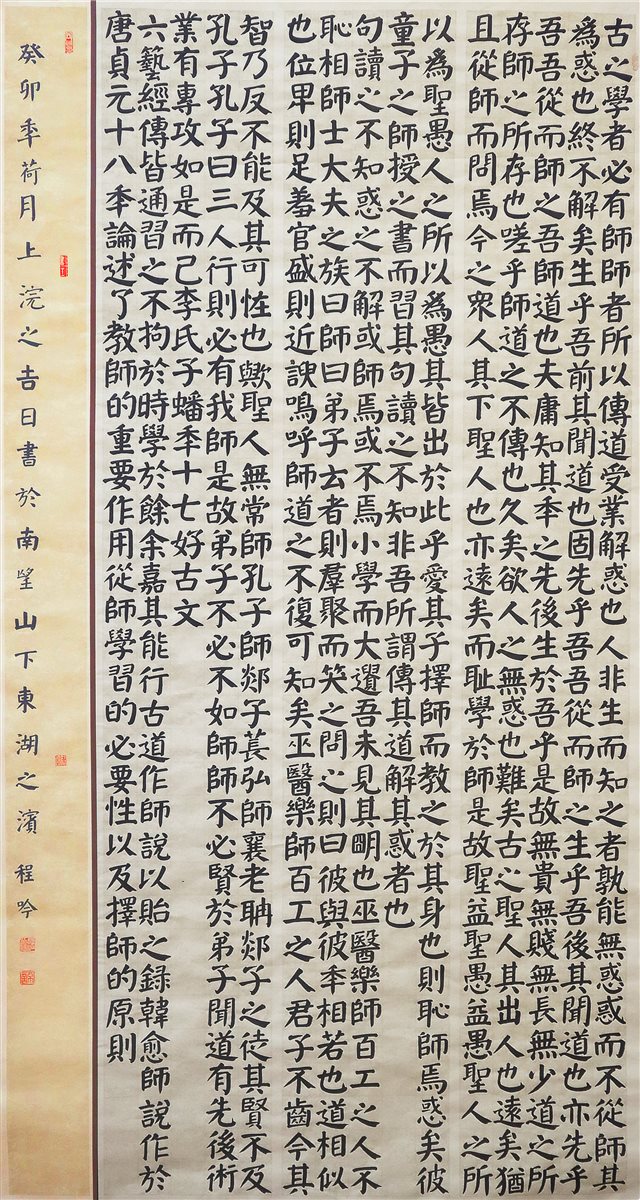 古之學者必有師師者所以傳道受業解惑也人非生而知之者孰能無惑惑而不從師其
為惑也終不解矣生乎吾前其聞道也固先乎吾吾從而師之生乎吾後其聞道也亦先乎
吾吾從而師之吾師道也夫庸知其秊之先後生於吾乎是故無貴無賤無長無少道之所
存師之所存也嗟乎師道之不傳也久矣欲人之無惑也難矣古之聖人其出人也遠矣猶
且從師而問焉今之眾人其下聖人也亦遠矣而耻學於師是故聖益聖愚益愚聖人之所
以為聖愚人之所以為愚其皆出於此乎愛其子擇師而教之於其身也則恥師焉惑矣彼
童子之師授之書而習其句讀之不知非吾所謂傳其道解其惑者也
句讀之不知惑之不解或師焉或不焉小學而大遺吾未見其朙也巫醫樂師百工之人不
恥相師士大夫之族曰師曰弟子云者則羣聚而笑之問之則曰彼與彼秊相若也道相似
也位卑則足羞官盛則近諛嗚呼師道之不復可知矣巫醫樂師百工之人君子不齒今其
智乃反不能及其可恠也歟聖人無常師孔子師郯子萇弘師襄老聃郯子之徒其賢不及
孔子孔子曰三人行則必有我師是故弟子不必不如師師不必賢於弟子聞道有先後術
業有專攻如是而已李氏子蟠秊十七好古文
六藝經傳皆通習之不拘於時學於餘余嘉其能行古道作師說以貽之録韓愈師說作於
唐貞元十八秊論述了教師的重要作用從師學習的必要性以及擇師的原則
癸卯秊荷月上浣之吉日書於南望山下東湖之濱程吟